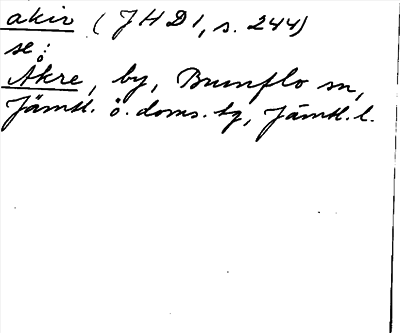 akir (JHD 1, s. 244)
se:
Åkre, by, Brunflo sn,
Jämtl. ö. doms. tg, Jämtl. l.